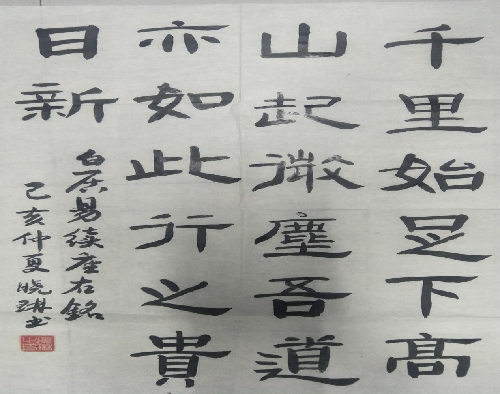 千里始足下高
山起微塵吾道
亦如此行之貴
日新
白居易續座右銘
己亥仲夏曉琳书